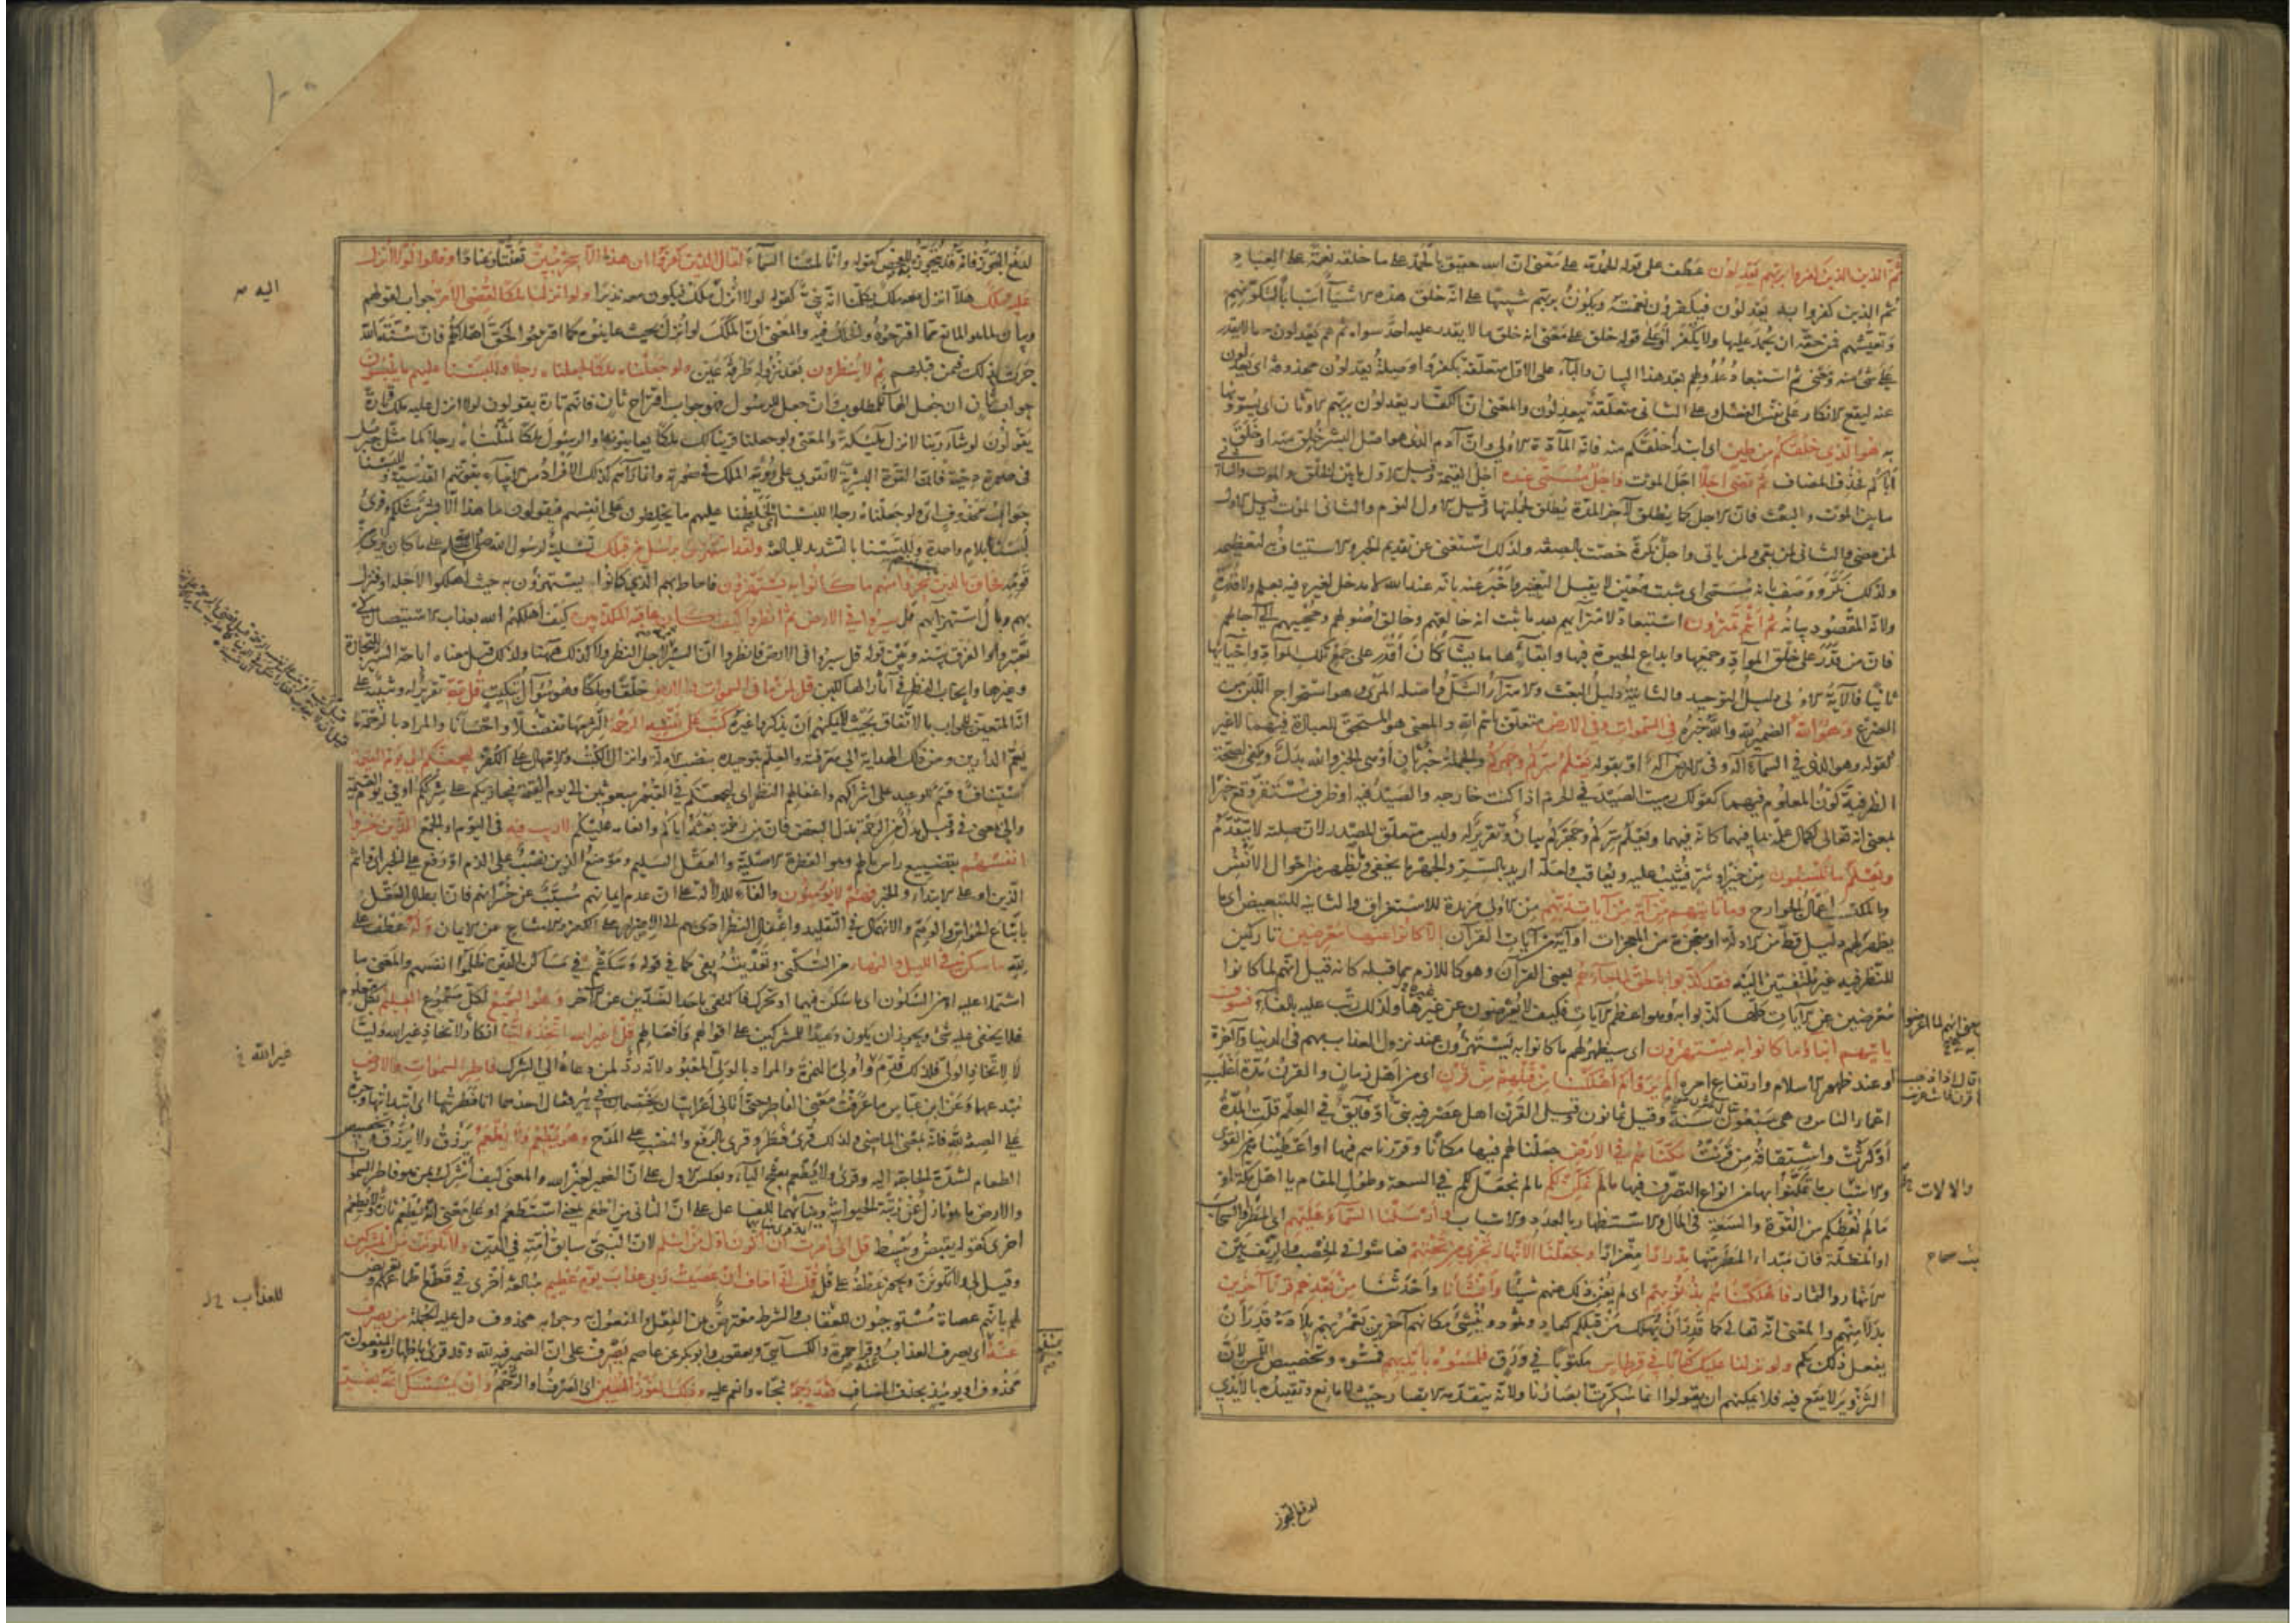 ثم الذين الذين كفروا بربهم يعدلون عطف على قوله الحمد لله على معنى ان الله حقيق بالحمد على ما خلقه نعمة على العباد
ثم الذين كفروا به يعدلون فيكفرون نعمته ويكون بربهم تنبيها على انه خلق هذه الاشياء اسبابا لتكونهم
وتعيشهم فمن حقه ان يحمد عليها ولا يكفر او على قوله خلق على معنى انه خلق ما لا يقدر عليه احد سواه ثم هم يعدلون به ما لا يقدر
على شئ منه ومعنى ثم استبعاد عدولهم بعد هذا البيان والباء على الاول متعلقة بكفروا وصلة يعدلون محذوفة اى يعدلون
عنه ليقع الانكار على نفس الفعل وعلى الثانى متعلقة بيعدلون والمعنى ان الكفار يعدلون بربهم الاوثان اى يسوونها
به هو الذى خلقكم من طين اى ابتدأ خلقكم منه فانه المادة الاولى وان آدم الذى هو اصل البشر خلق منه او خلق
اباكم فحذف المضاف ثم قضى اجلا اجل الموت واجل مسمى عنده اجل القيمة وقيل الاول ما بين الخلق والموت والثانى
ما بين الموت والبعث فان الاجل كما يطلق لآخر المدة يطلق لجملتها وقيل الاول النوم والثانى الموت وقيل الاول
لمن مضى والثانى لمن بقى ولمن يأتى واجل نكرة خصت بالصفة ولذلك استغنى عن تقديم الخبر والاستيناف به لتعظيمه
ولذلك نكر ووصف بانه مسمى اى مثبت معين لا يقبل التغيير واخبر عنه بانه عند الله لا مدخل لغيره فيه بعلم ولا قدرة
ولانه المقصود بيانه ثم انتم تمترون استبعاد لامترائهم بعد ما ثبت انه خالقهم وخالق اصولهم ومحييهم الى آجالهم
فان من قدر على خلق المواد وجمعها وابداع الحيوة فيها وابقائها ما يشاء كان اقدر على جمع تلك المواد واحيائها
ثانيا فالآية الاولى دليل التوحيد والثانية دليل البعث والامتراء الشك واصله المرى وهو استخراج اللبن من
الضرع وهو الله الضمير لله والله خبره فى السموات وفى الارض متعلق باسم الله والمعنى هو المستحق للعبادة فيهما لا غير
كقوله وهو الذى فى السماء اله وفى الارض اله او بقوله يعلم سركم وجهركم والجملة خبر ثان او هى الخبر والله بدل ويكفى لصحة
الظرفية كون المعلوم فيهما كقولك رميت الصيد فى الحرم اذا كنت خارجه والصيد فيه او ظرف مستقر وقع خبرا
بمعنى انه تعالى لكمال علمه بما فيهما كانه فيهما ويعلم سركم وجهركم بيان وتقرير له وليس متعلق المصدر لان صلته لا تتقدم
ويعلم ما تكسبون من خير او شر فيثيب عليه ويعاقب ولعله اريد بالسر والجهر ما يخفى وما يظهر من احوال الانفس
وبالمكتسب اعمال الجوارح وما تأتيهم من آية من آيات ربهم من الاولى مزيدة للاستغراق والثانية للتبعيض اى ما
يظهر لهم دليل قط من الادلة او معجزة من المعجزات او آية من آيات القرآن الا كانوا عنها معرضين تاركين
للنظر فيه غير ملتفتين اليه فقد كذبوا بالحق لما جاءهم يعنى القرآن وهو كاللازم مما قبله كانه قيل انهم لما كانوا
معرضين عن الآيات كلها كذبوا به وهو اعظم الآيات فكيف لا يعرضون عن غيرها ولذلك رتب عليه بالفاء فسوف
يأتيهم انباء ما كانوا به يستهزؤن اى سيظهر لهم ما كانوا به يستهزؤن عند نزول العذاب بهم فى الدنيا والآخرة
او عند ظهور الاسلام وارتفاع امره الم يروا كم اهلكنا من قبلهم من قرن اى من اهل زمان والقرن مدة اغلب
اعمار الناس وهى سبعون سنة وقيل ثمانون وقيل القرن اهل عصر فيه نبى او فايق فى العلم قلت المدة
او كثرت واشتقاقه من قرنت مكناهم فى الارض جعلنا لهم فيها مكانا وقررناهم فيها او اعطيناهم من القوى
والاسباب ما تمكنوا بها من انواع التصرف فيها ما لم نمكن لكم ما لم نجعل لكم فى السعة وطول المقام يا اهل مكة او
ما لم نعطكم من القوة والسعة فى المال والاستظهار بالعدد والاسباب وارسلنا السماء عليهم اى المطر او السحاب
او المظلة فان مبدأ المطر منها مدرارا مغزارا وجعلنا الانهار تجرى من تحتهم فعاشوا فى الخصب والريف بين
الانهار والثمار فاهلكناهم بذنوبهم اى لم يغن ذلك عنهم شيئا وانشأنا واحدثنا من بعدهم قرنا آخرين
بدلا منهم والمعنى انه تعالى كما قدر ان يهلك من قبلكم كعاد وثمود وينشئ مكانهم آخرين يعمر بهم بلاده قدر ان
يفعل ذلك بكم ولو نزلنا عليك كتابا فى قرطاس مكتوبا فى ورق فلمسوه بايديهم فمسوه وتخصيص اللمس لان
التزوير لا يقع فيه فلا يمكنهم ان يقولوا انما سكرت ابصارنا ولانه يتقدمه الابصار حيث لا مانع وتقييده بالايدى
يعنى انهم لما اعرضوا
والآلات
لدفع التجوز
لدفع التجوز فانه قد يتجوز به للفحص كقوله وانا لمسنا السماء لقال الذين كفروا ان هذا الا سحر مبين تعنتا وعنادا وقالوا لولا انزل
عليه ملك هلا انزل معه ملك يكلمنا انه نبى كقوله لولا انزل اليه ملك فيكون معه نذيرا ولو انزلنا ملكا لقضى الامر جواب لقولهم
وبيان لما هو المانع مما اقترحوه والخلل فيه والمعنى ان الملك لو انزل بحيث عاينوه كما اقترحوا لحق اهلاكهم فان سنة الله
جرت بذلك فيمن قبلهم ثم لا ينظرون بعد نزوله طرفة عين ولو جعلناه ملكا لجعلناه رجلا وللبسنا عليهم ما يلبسون
جواب ثان ان جعل الهاء للمطلوب وان جعل للرسول فهو جواب اقتراح ثان فانهم تارة يقولون لولا انزل عليه ملك وتارة
يقولون لو شاء ربنا لانزل ملئكة والمعنى ولو جعلنا قرينا لك ملكا يعاينونه او الرسول ملكا لمثلناه رجلا كما مثل جبريل
فى صورة دحية فان القوة البشرية لا تقوى على رؤية الملك فى صورته وانما رآهم كذلك الافراد من الانبياء بقوتهم القدسية وللبسنا
جواب محذوف اى ولو جعلناه رجلا للبسنا اى لخلطنا عليهم ما يخلطون على انفسهم فيقولون ما هذا الا بشر مثلكم وقرئ
لبسنا بلام واحدة وللبسنا بالتشديد للمبالغة ولقد استهزئ برسل من قبلك تسلية لرسول الله صلى الله عليه وسلم على ما كان يرى من
قومه فحاق بالذين سخروا منهم ما كانوا به يستهزؤن فاحاط بهم الذى كانوا يستهزؤن به حيث اهلكوا لاجله او فنزل
بهم وبال استهزائهم قل سيروا فى الارض ثم انظروا كيف كان عاقبة المكذبين كيف اهلكهم الله بعذاب الاستيصال كى
تعتبروا والفرق بينه وبين قوله قل سيروا فى الارض فانظروا ان السير لاجل النظر ولا كذلك ههنا ولذلك قيل معناه اباحة السير للتجارة
وغيرها وايجاب النظر فى آثار الهالكين قل لمن ما فى السموات والارض خلقا وملكا وهو سؤال تبكيت قل لله تقريرا لهم وتنبيه على
انه المتعين للجواب بالاتفاق بحيث لا يمكنهم ان يذكروا غيره كتب على نفسه الرحمة التزمها تفضلا واحسانا والمراد بالرحمة ما
يعم الدارين ومن ذلك الهداية الى معرفته والعلم بتوحيده بنصب الادلة وانزال الكتب والامهال على الكفر ليجمعنكم الى يوم القيمة
استيناف وقسم للوعيد على اشراكهم واغفالهم النظر اى ليجمعنكم فى القبور مبعوثين الى يوم القيمة فيجازيكم على شرككم او فى يوم القيمة
والى بمعنى فى وقيل بدل من الرحمة بدل البعض فان من رحمته بعثه اياكم وانعامه عليكم لا ريب فيه فى اليوم او الجمع الذين خسروا
انفسهم بتضييع رأس مالهم وهو الفطرة الاصلية والعقل السليم وموضع الذين نصب على الذم او رفع على الخبر اى وانتم
الذين او على الابتداء والخبر فهم لا يؤمنون والفاء للدلالة على ان عدم ايمانهم مسبب عن خسرانهم فان ابطال العقل
باتباع الحواس والوهم والانهماك فى التقليد واغفال النظر ادى بهم الى الاصرار على الكفر والامتناع عن الايمان وله عطف على
لله ما سكن فى الليل والنهار من السكنى وتعديته بفى كما فى قوله وسكنتم فى مساكن الذين ظلموا انفسهم والمعنى ما
اشتملا عليه او من السكون اى ما سكن فيهما او تحرك فاكتفى باحد الضدين عن الآخر وهو السميع لكل مسموع العليم بكل معلوم
فلا يخفى عليه شئ ويجوز ان يكون وعيدا للمشركين على اقوالهم وافعالهم قل اغير الله اتخذ وليا انكار لاتخاذ غير الله وليا
لا لاتخاذ الولى فلذلك قدم واولى الهمزة والمراد بالولى المعبود لانه رد لمن دعاه الى الشرك فاطر السموات والارض
مبدعهما وعن ابن عباس ما عرفت معنى الفاطر حتى اتانى اعرابيان يختصمان فى بئر فقال احدهما انا فطرتها اى ابتدأتها وجره
على الصفة لله فانه بمعنى الماضى ولذلك قرئ فطر وقرئ بالرفع والنصب على المدح وهو يطعم ولا يطعم يرزق ولا يرزق وتخصيص
الطعام لشدة الحاجة اليه وقرئ ولا يطعم بفتح الياء وبعكس الاول على ان الضمير لغير الله والمعنى كيف اشرك بمن هو فاطر السموات
والارض ما هو نازل عن رتبة الحيوانية وببنائهما للفاعل على ان الثانى من اطعم بمعنى استطعم او على معنى انه يطعم تارة ولا يطعم
اخرى كقوله يقبض ويبسط قل انى امرت ان اكون اول من اسلم لان النبى سابق امته فى الدين ولا تكونن من المشركين
وقيل لى ولا تكونن ويجوز عطفه على قل قل انى اخاف ان عصيت ربى عذاب يوم عظيم مبالغة اخرى فى قطع اطماعهم وتعريض
لهم بانهم عصاة مستوجبون للعذاب والشرط معترض بين الفعل والمفعول به وجوابه محذوف دل عليه الجملة من يصرف
عنه اى يصرف العذاب وقرأ حمزة والكسائى ويعقوب وابو بكر عن عاصم يصرف على ان الضمير فيه لله وقد قرئ باظهاره والمفعول به
محذوف او يومئذ بحذف المضاف فقد رحمه نجاه وانعم عليه وذلك الفوز المبين اى الصرف او الرحم وان يمسسك الله بضر
اليه
غير الله
للعذاب